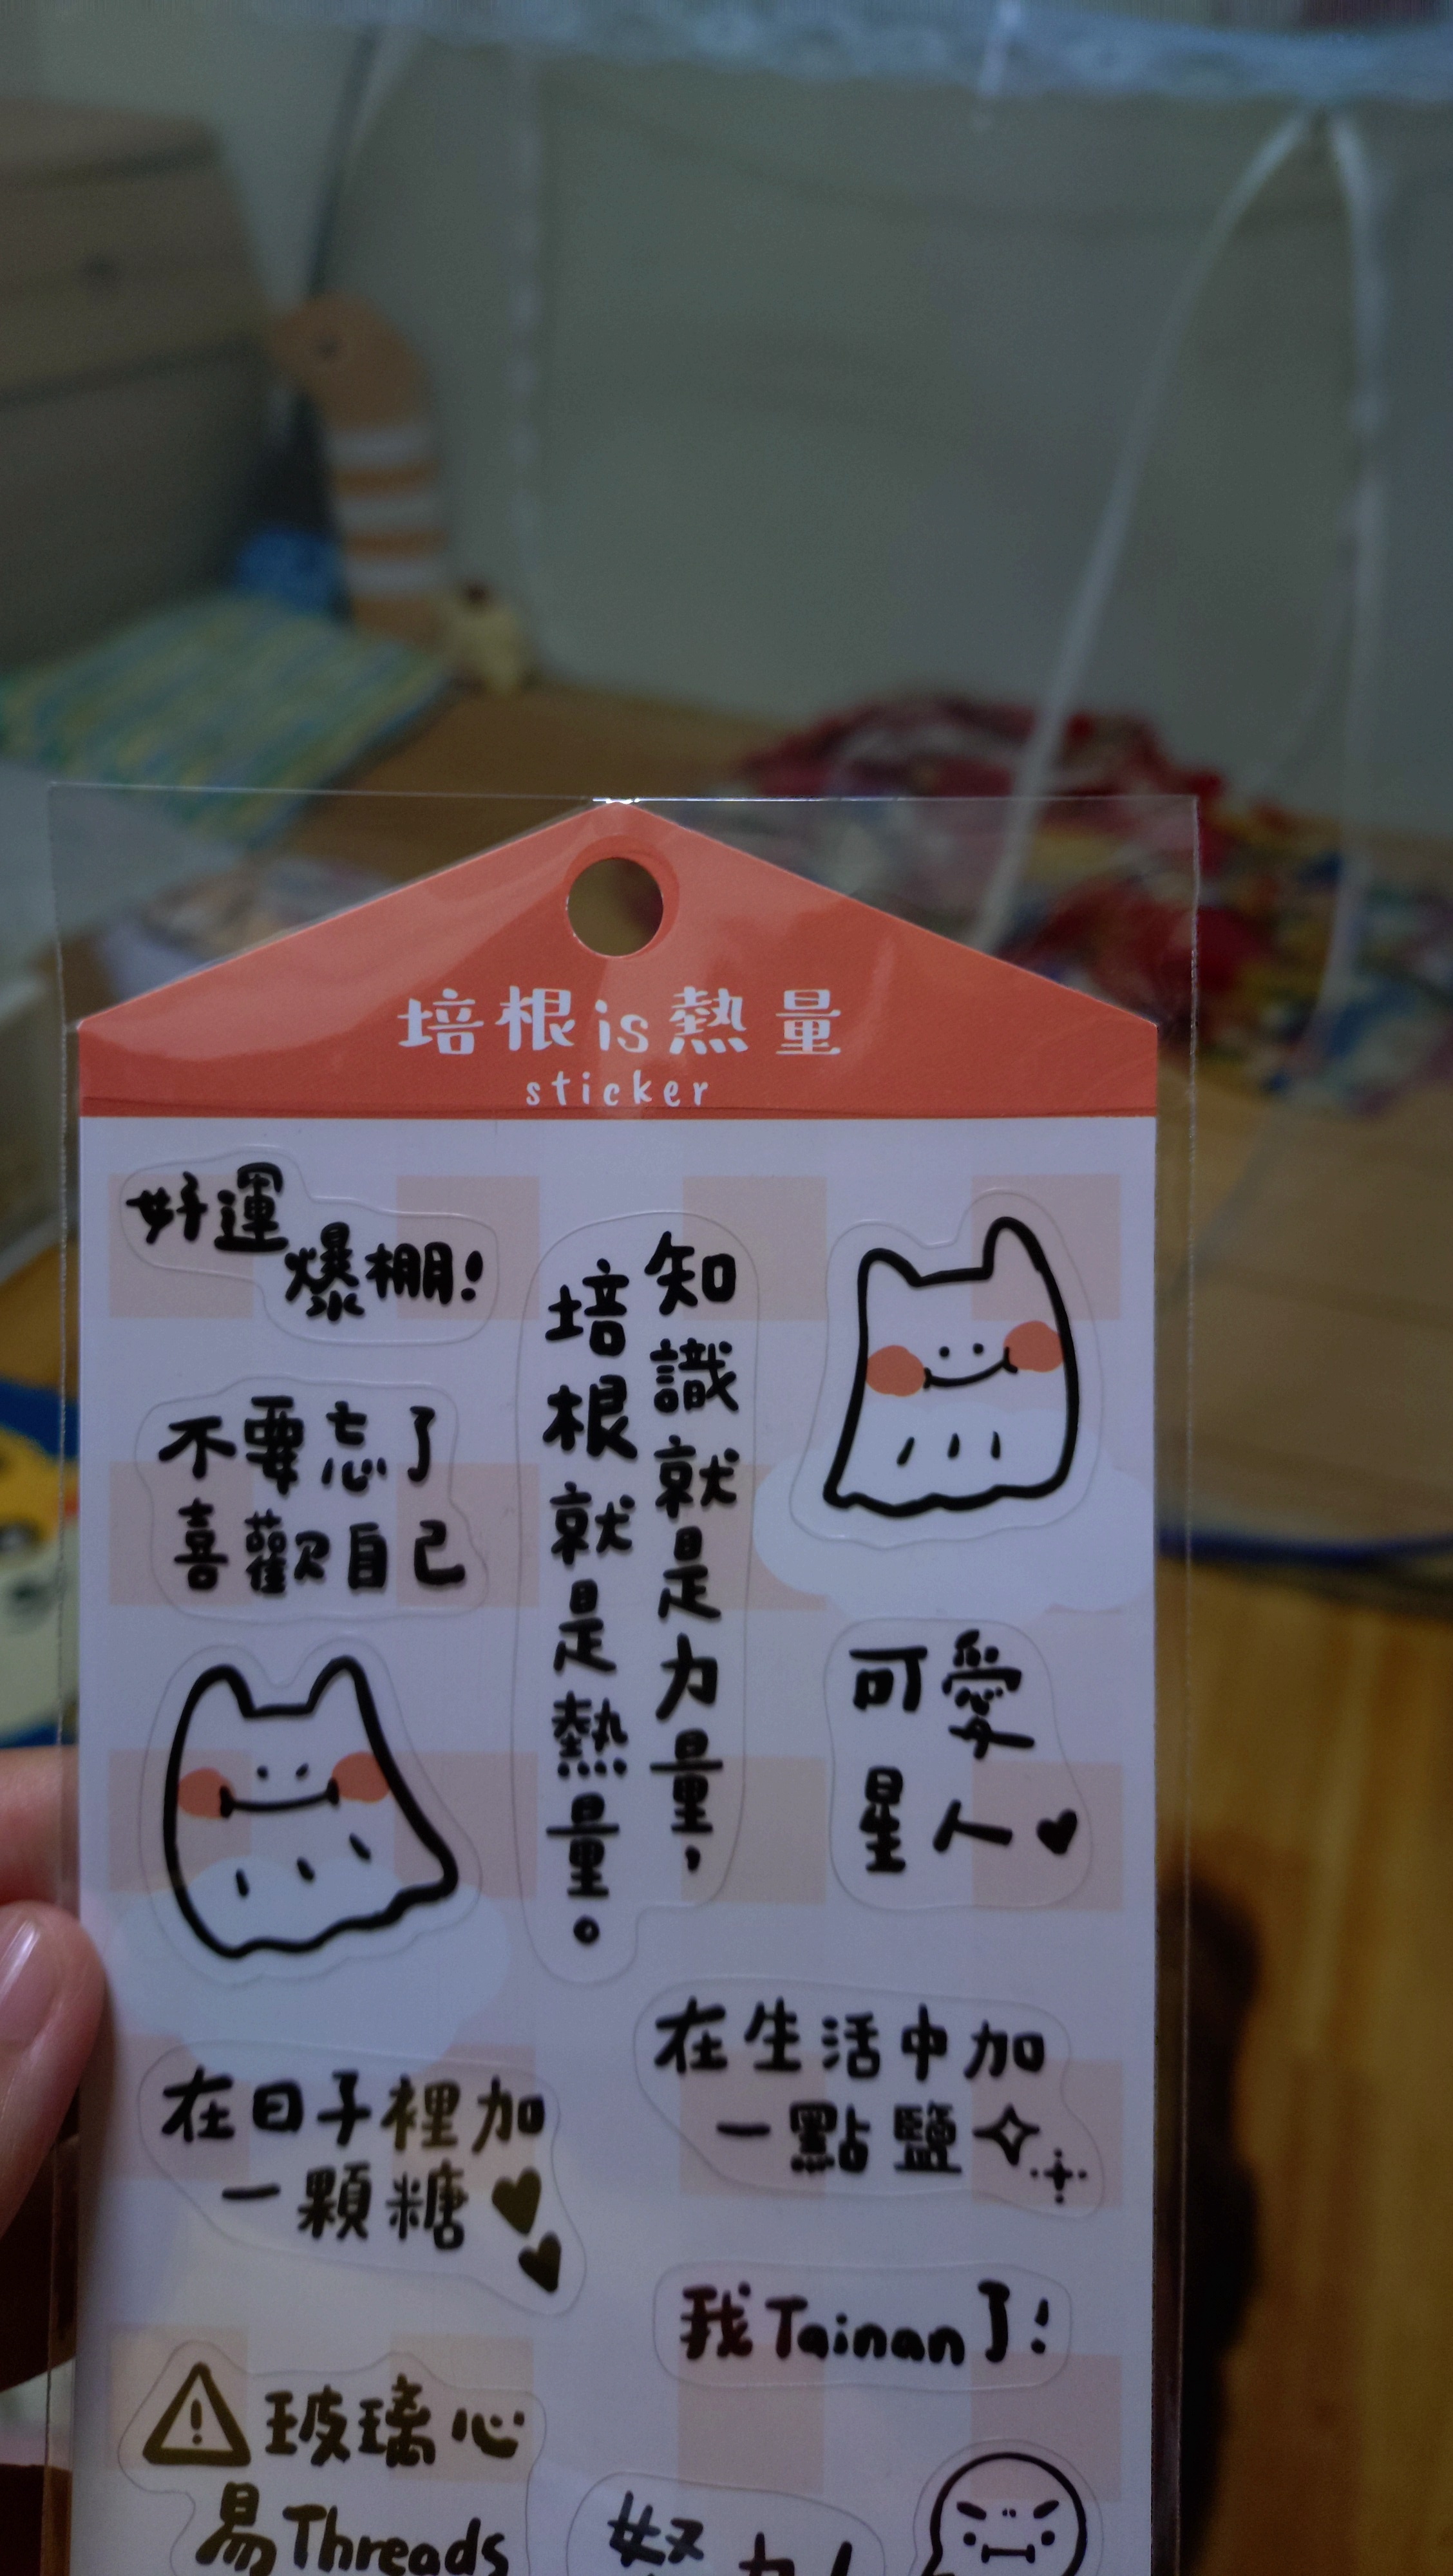 培根is熱量
sticker
好運
爆棚!
知識就是力量,
培根就是熱量。
不要忘了
喜歡自己
可愛
星人
在生活中加
一點鹽
在日子裡加
一顆糖
我Tainan了!
玻璃心
易Threads
努力!